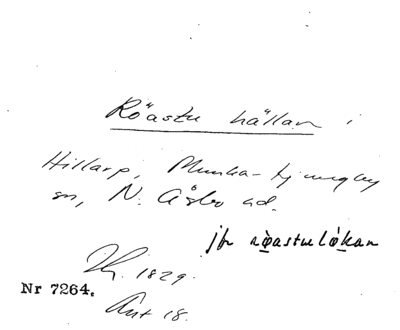 Röastu hällan i
Hillarp, Munka-Ljungby
sn, N. Åsbo hd.
jfr röastulökan
1829.
Nr 7264.
Ant 18.